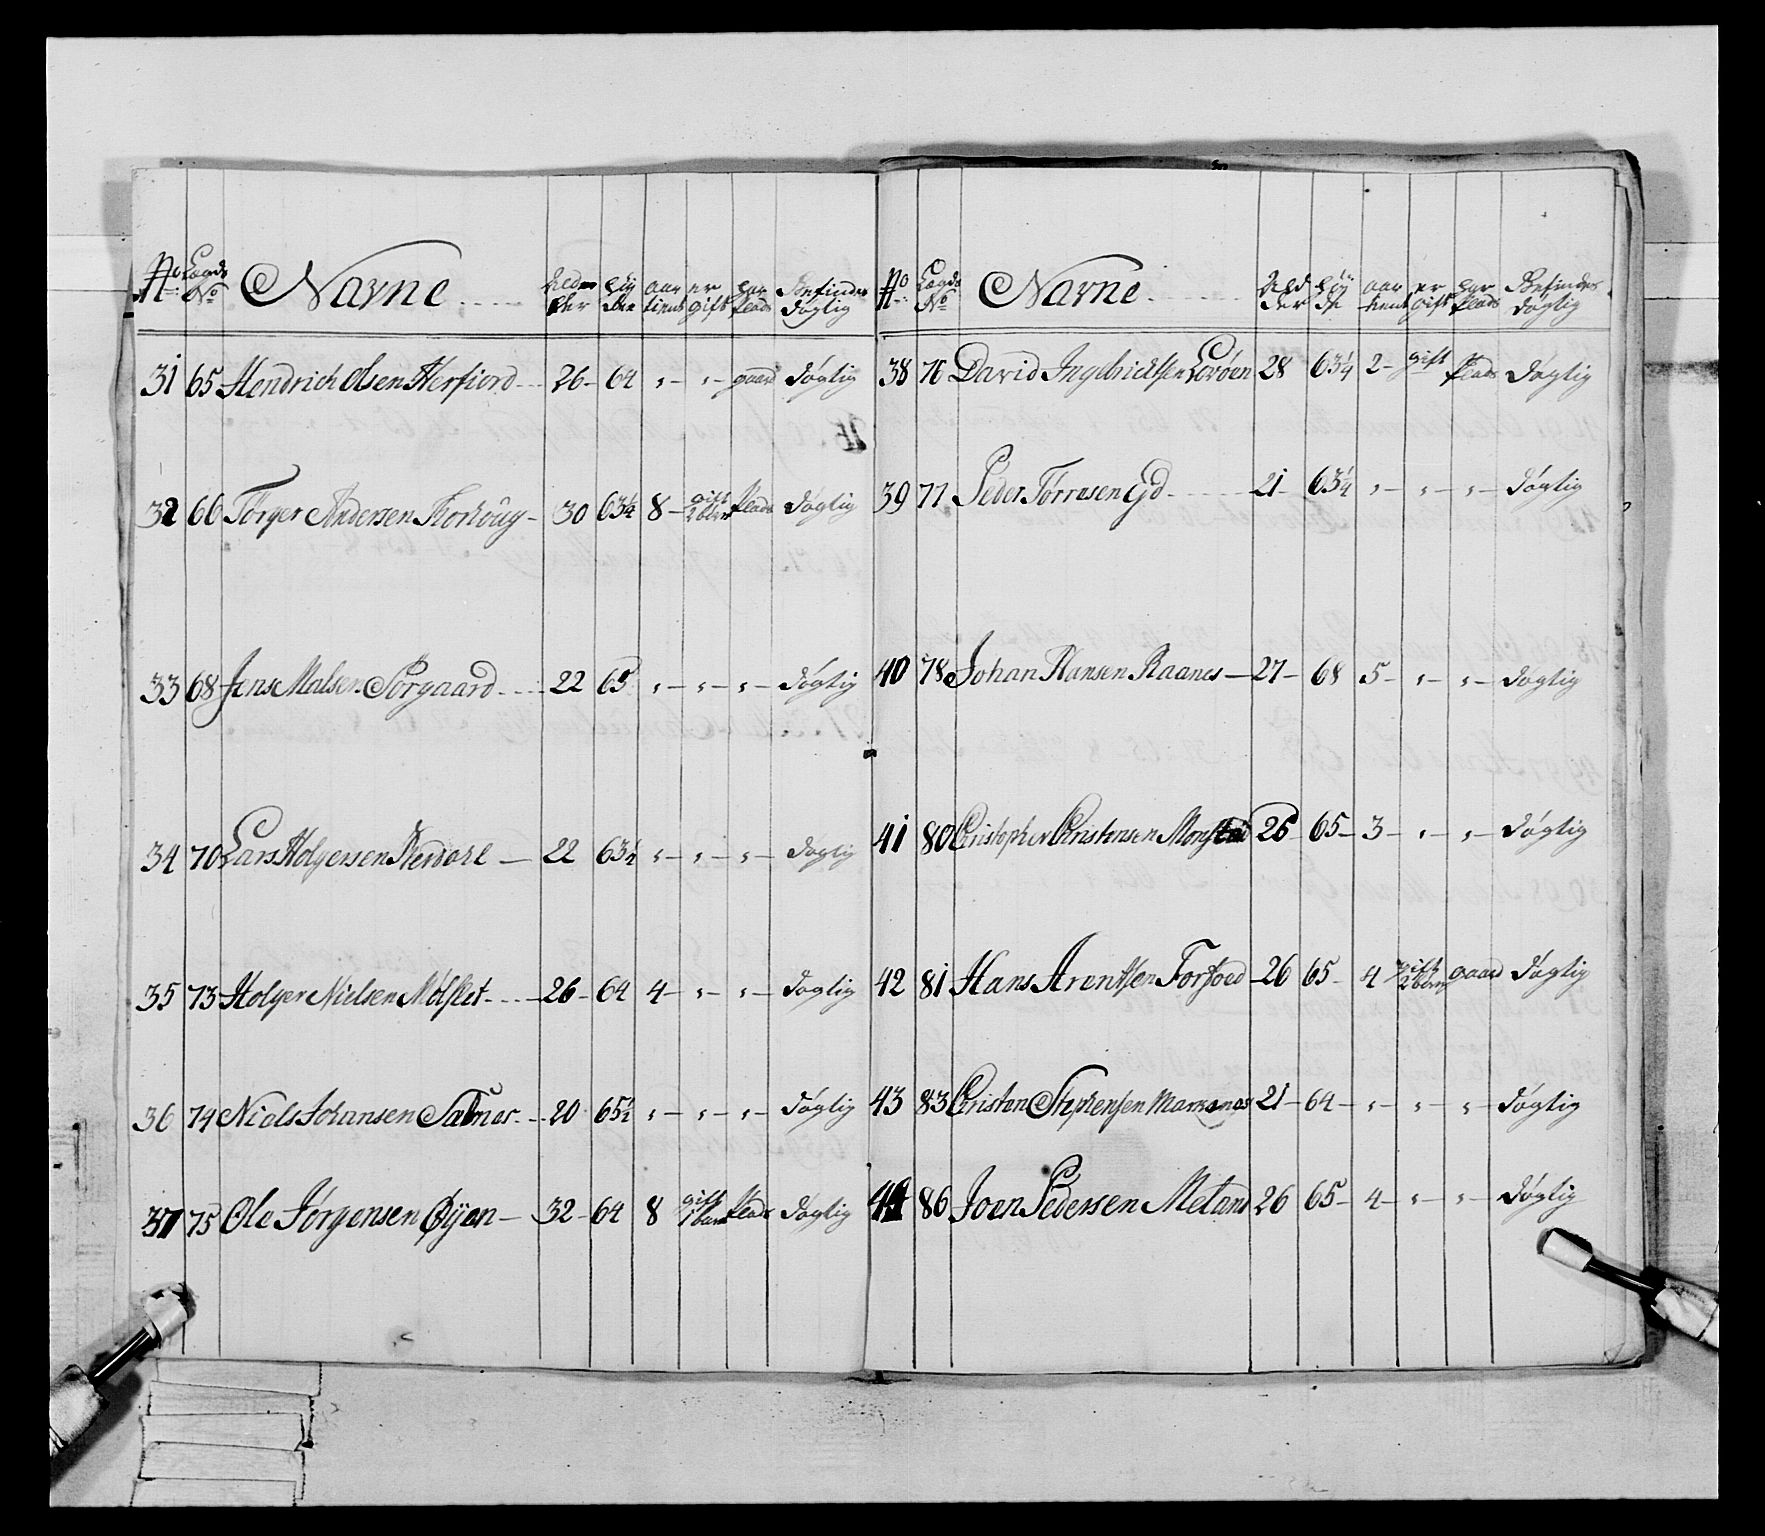 No Lægds No Navne Alder Høyde aar tient er gift har Plads Befindes døgtig
31 65 Hendrich Olsen Herfiord 26 64 " " gaard døgtig
32 66 Törger Andersen Korhoug 30 63½ 8 gift 2 børn Plads døgtig
33 68 Jens Malsen Sorgaard 22 65 " " " døgtig
34 70 Lars Holgersen Nerdare 22 63½ " " " døgtig
35 73 Holger Nielsen Mølslet 26 64 4 " " døgtig
36 74 Niels Johansen Salnes 20 65½ " " " døgtig
37 75 Ole Jørgensen Øijen 32 64 8 gift 1 barn Plads døgtig
No Lægds No Navne Alder Høyde aar tient er Gift har Plads Befindes døgtig
38 76 David Ingebrictsen Lovöen 28 63¼ 2 gift Plads døgtig
39 77 Peder Tørresen Eid 21 63¼ " " " døgtig
40 78 Johan Hansen Raanes 27 68 5 " " døgtig
41 80 Christopher Christensen 26 65 3 " " døgtig
42 81 Hans Arentsen 26 65 4 gift 2 børn gaard døgtig
43 83 Cristen Stephensen 21 64 " " " døgtig
44 86 Joen Pedersen Meland 26 65 4 " " døgtig